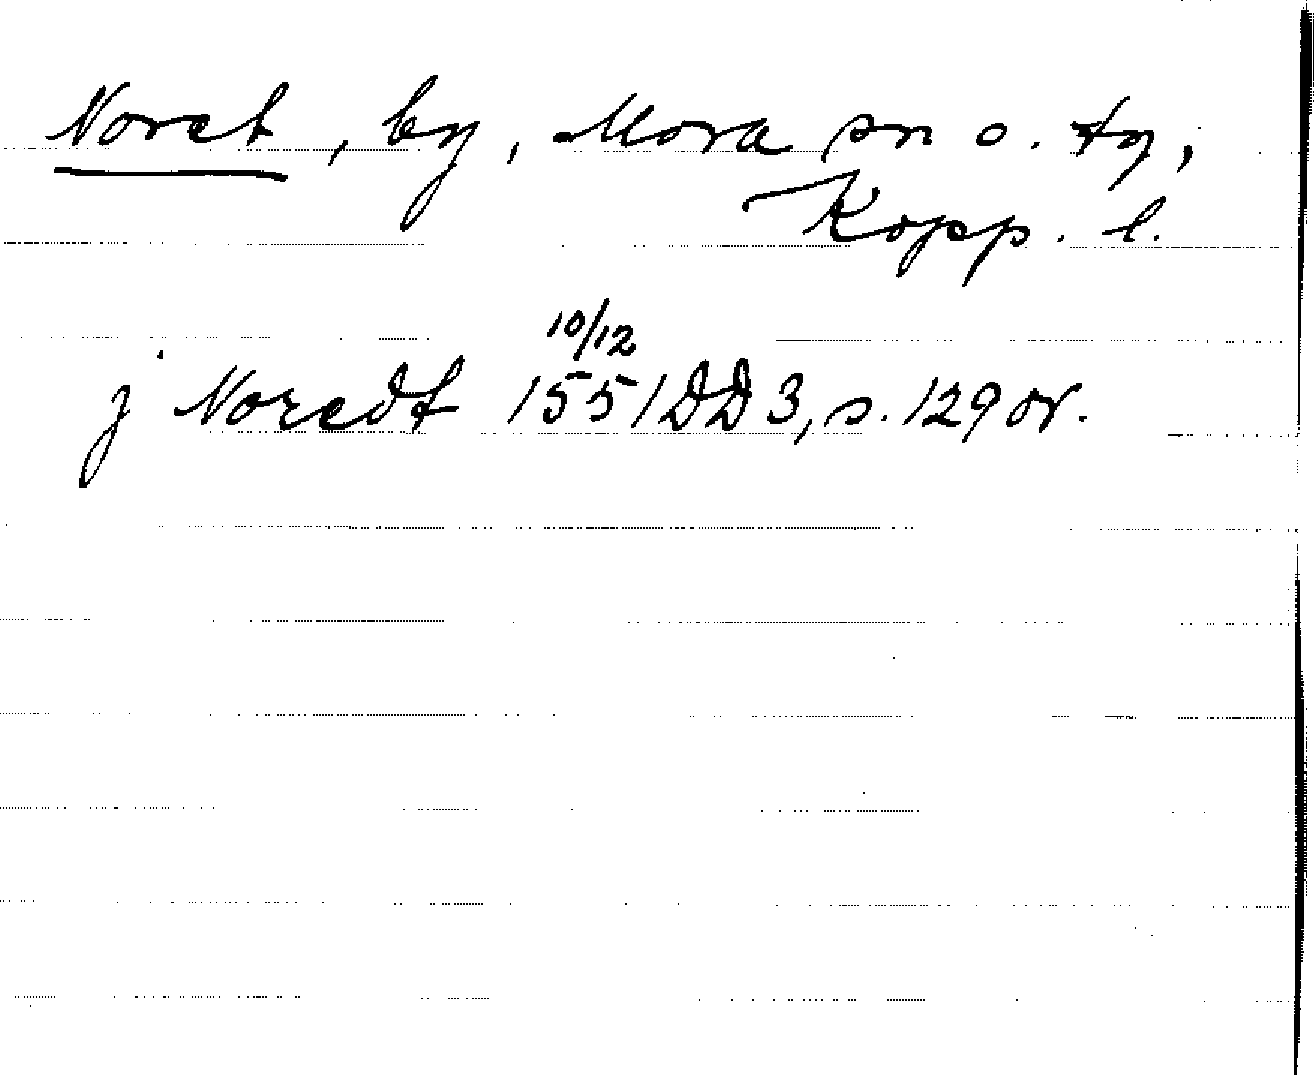 Noret, by, Mora sn o. tg,
Kopp. l.
10/12
j Noredt 1551 DD 3, s. 129 or.